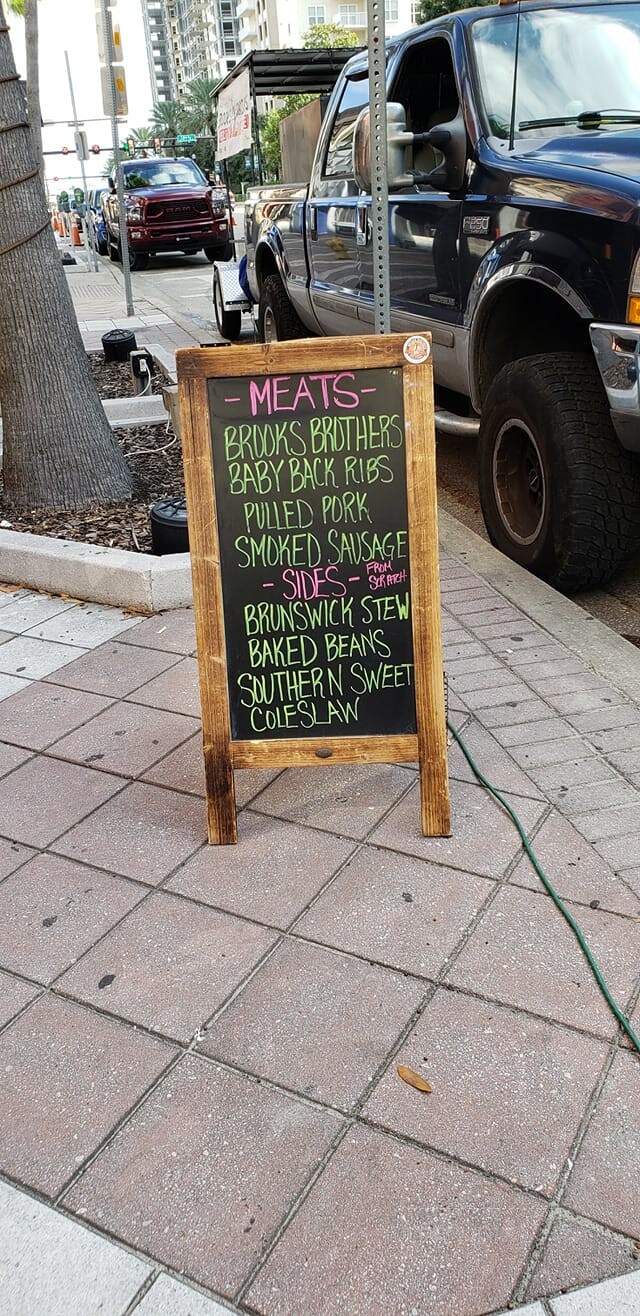 - MEATS -
BROOKS BROTHERS
BABY BACK RIBS
PULLED PORK
SMOKED SAUSAGE
- SIDES - FROM SCRATCH
BRUNSWICK STEW
BAKED BEANS
SOUTHERN SWEET
COLESLAW
F250
RAM